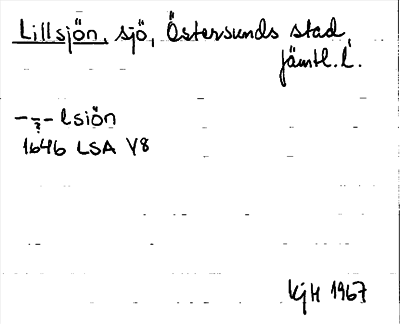 Lillsjön, sjö, Östersunds stad,
Jämtl. l.
- -?- lsiön
1646 LSA Y8
KjH 1967